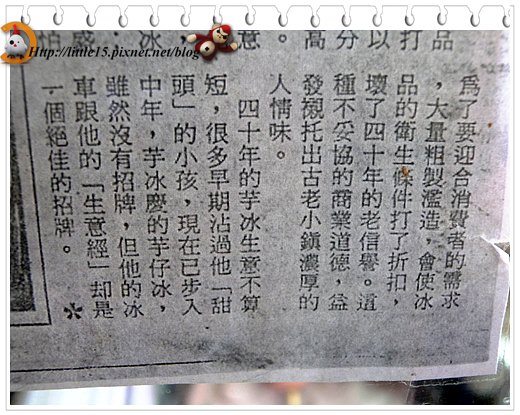 Http://little15.pixnet.net/blog
品
打
以
分
高
。
意
冰
為了要迎合消費者的需求
，大量粗製濫造，會使冰
品的衛生條件打了折扣，
壞了四十年的老信譽。這
種不妥協的商業道德，益
發襯托出古老小鎮濃厚的
人情味。
四十年的芋冰生意不算
短，很多早期沾過他「甜
頭」的小孩，現在已步入
中年，芋冰慶的芋仔冰，
雖然沒有招牌，但他的冰
車跟他的「生意經」却是
一個絕佳的招牌。 ＊